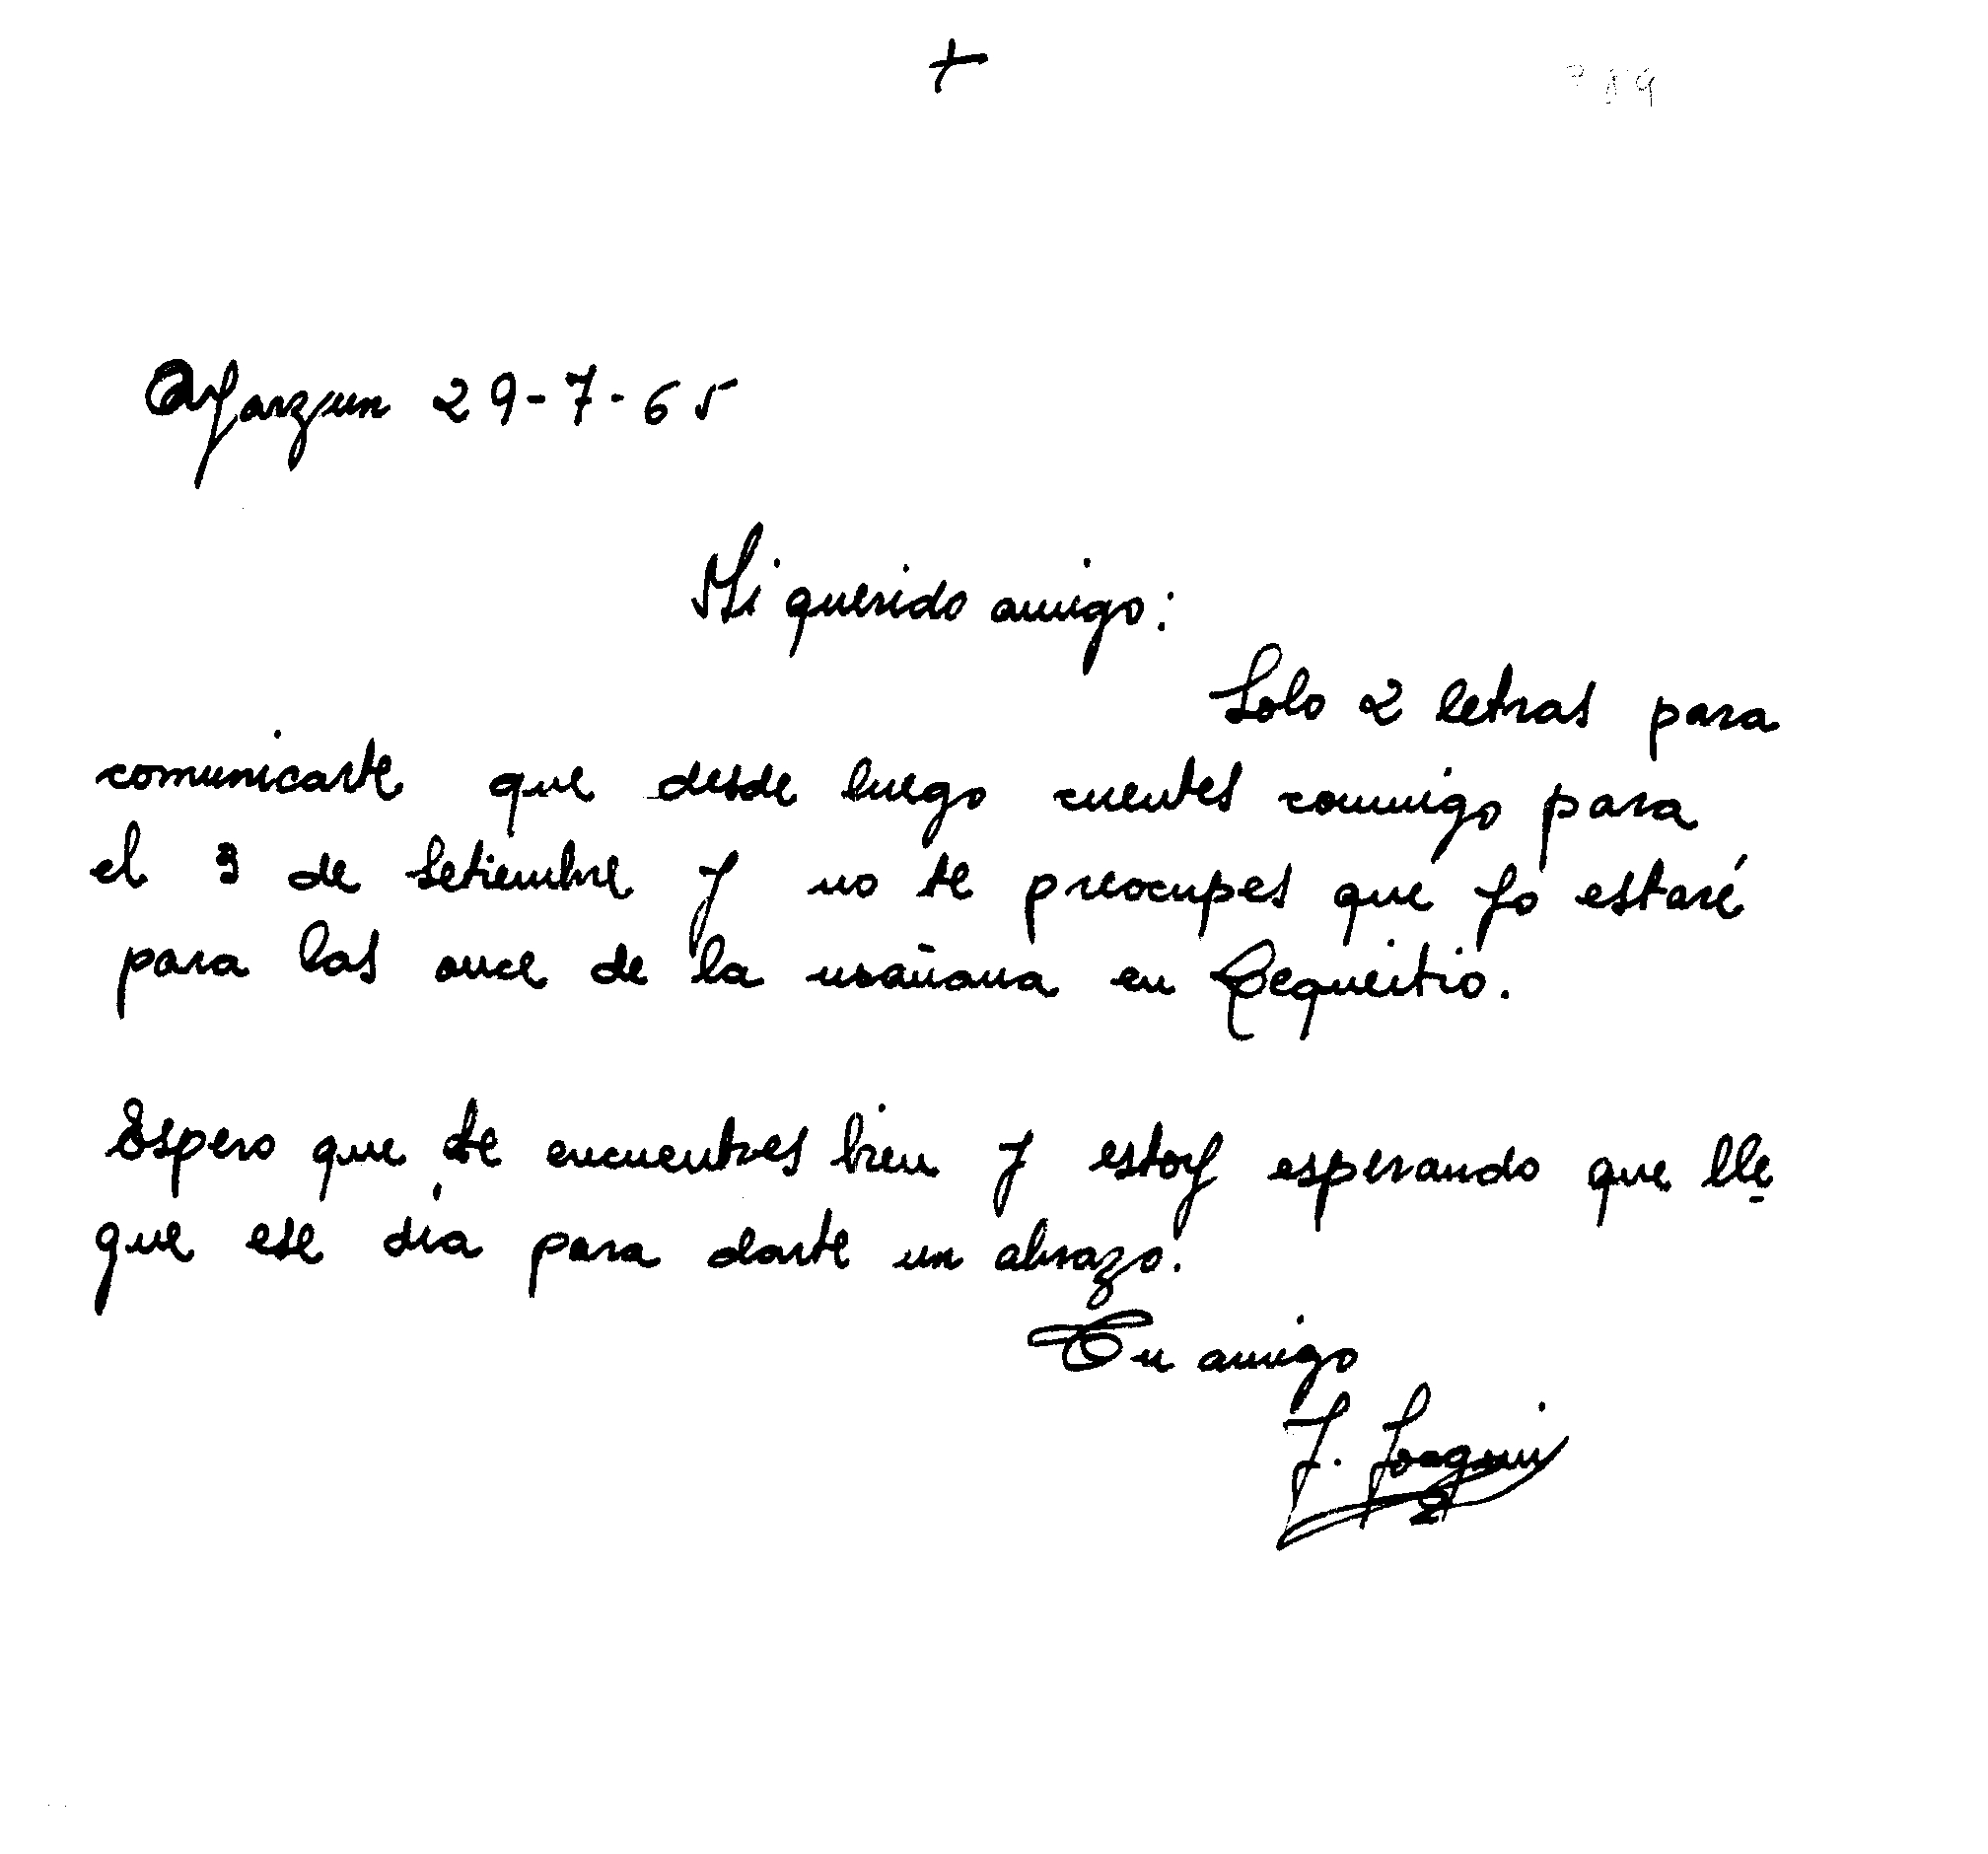 +
789
Oyarzun 29-7-65
Mi querido amigo:
Solo 2 letras para
comunicarte que desde luego cuentes conmigo para
el 3 de Setiembre y no te preocupes que yo estaré
para las once de la mañana en Lequeitio.
Espero que te encuentres bien y estoy esperando que lle
gue ese día para darte un abrazo.
Tu amigo
J. Joaquin